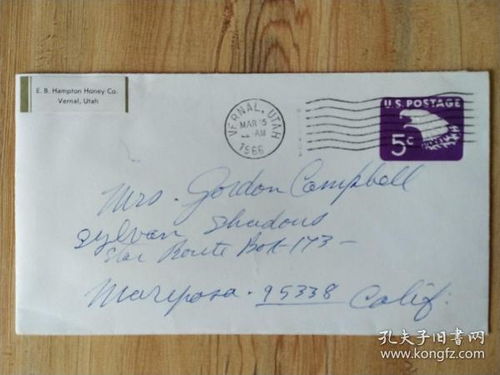 E. B. Hampton Honey Co.
Vernal, Utah
VERNAL, UTAH
MAR 5
AM
1966
U.S. POSTAGE
5c
Mrs. Gordon Campbell
Sylvan Shadows
Star Route Box 173-
Mariposa. 95338 Calif.
孔夫子旧书网
www.kongfz.com